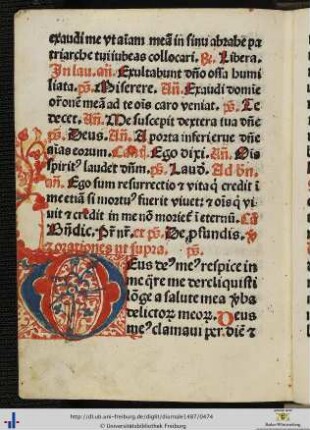 exaudi me vt aīam meā in sinu abrahe pa
triarche tui iubeas collocari. ℞. Libera.
In lau. añ. Exultabunt dño ossa humi
liata. ps̄. Miserere. Añ. Exaudi domie
orōnē meā ad te oīs caro veniat. ps̄. Te
decet. Añ. Me suscepit dextera tua dñe
ps̄. Deus. Añ. A porta inferi erue dñe
aīas eorum. Ego dixi. Añ. Oīs
spiritꝰ laudet dñm. ps̄. Laud. Ad bñ.
añ. Ego sum resurrectio et vita q̄ credit ī
me etiā si mortuꝰ fuerit viuet: et oīs q̄ vi
uit et credit in me nō morieť ī eternū. Cā
Bñdic. Pr̄ nr̄. et ps̄. De ꝓfundis.
et orationes vt supra. ps̄.
Deus deꝰ meꝰ respice in
me q̄re me dereliquisti
lōge a salute mea v̄ba
delictoꝝ meoꝝ. Deus
meꝰ clamaui per diē et
http://dl.ub.uni-freiburg.de/diglit/diurnale1487/0474
© Universitätsbibliothek Freiburg
Baden-Württemberg